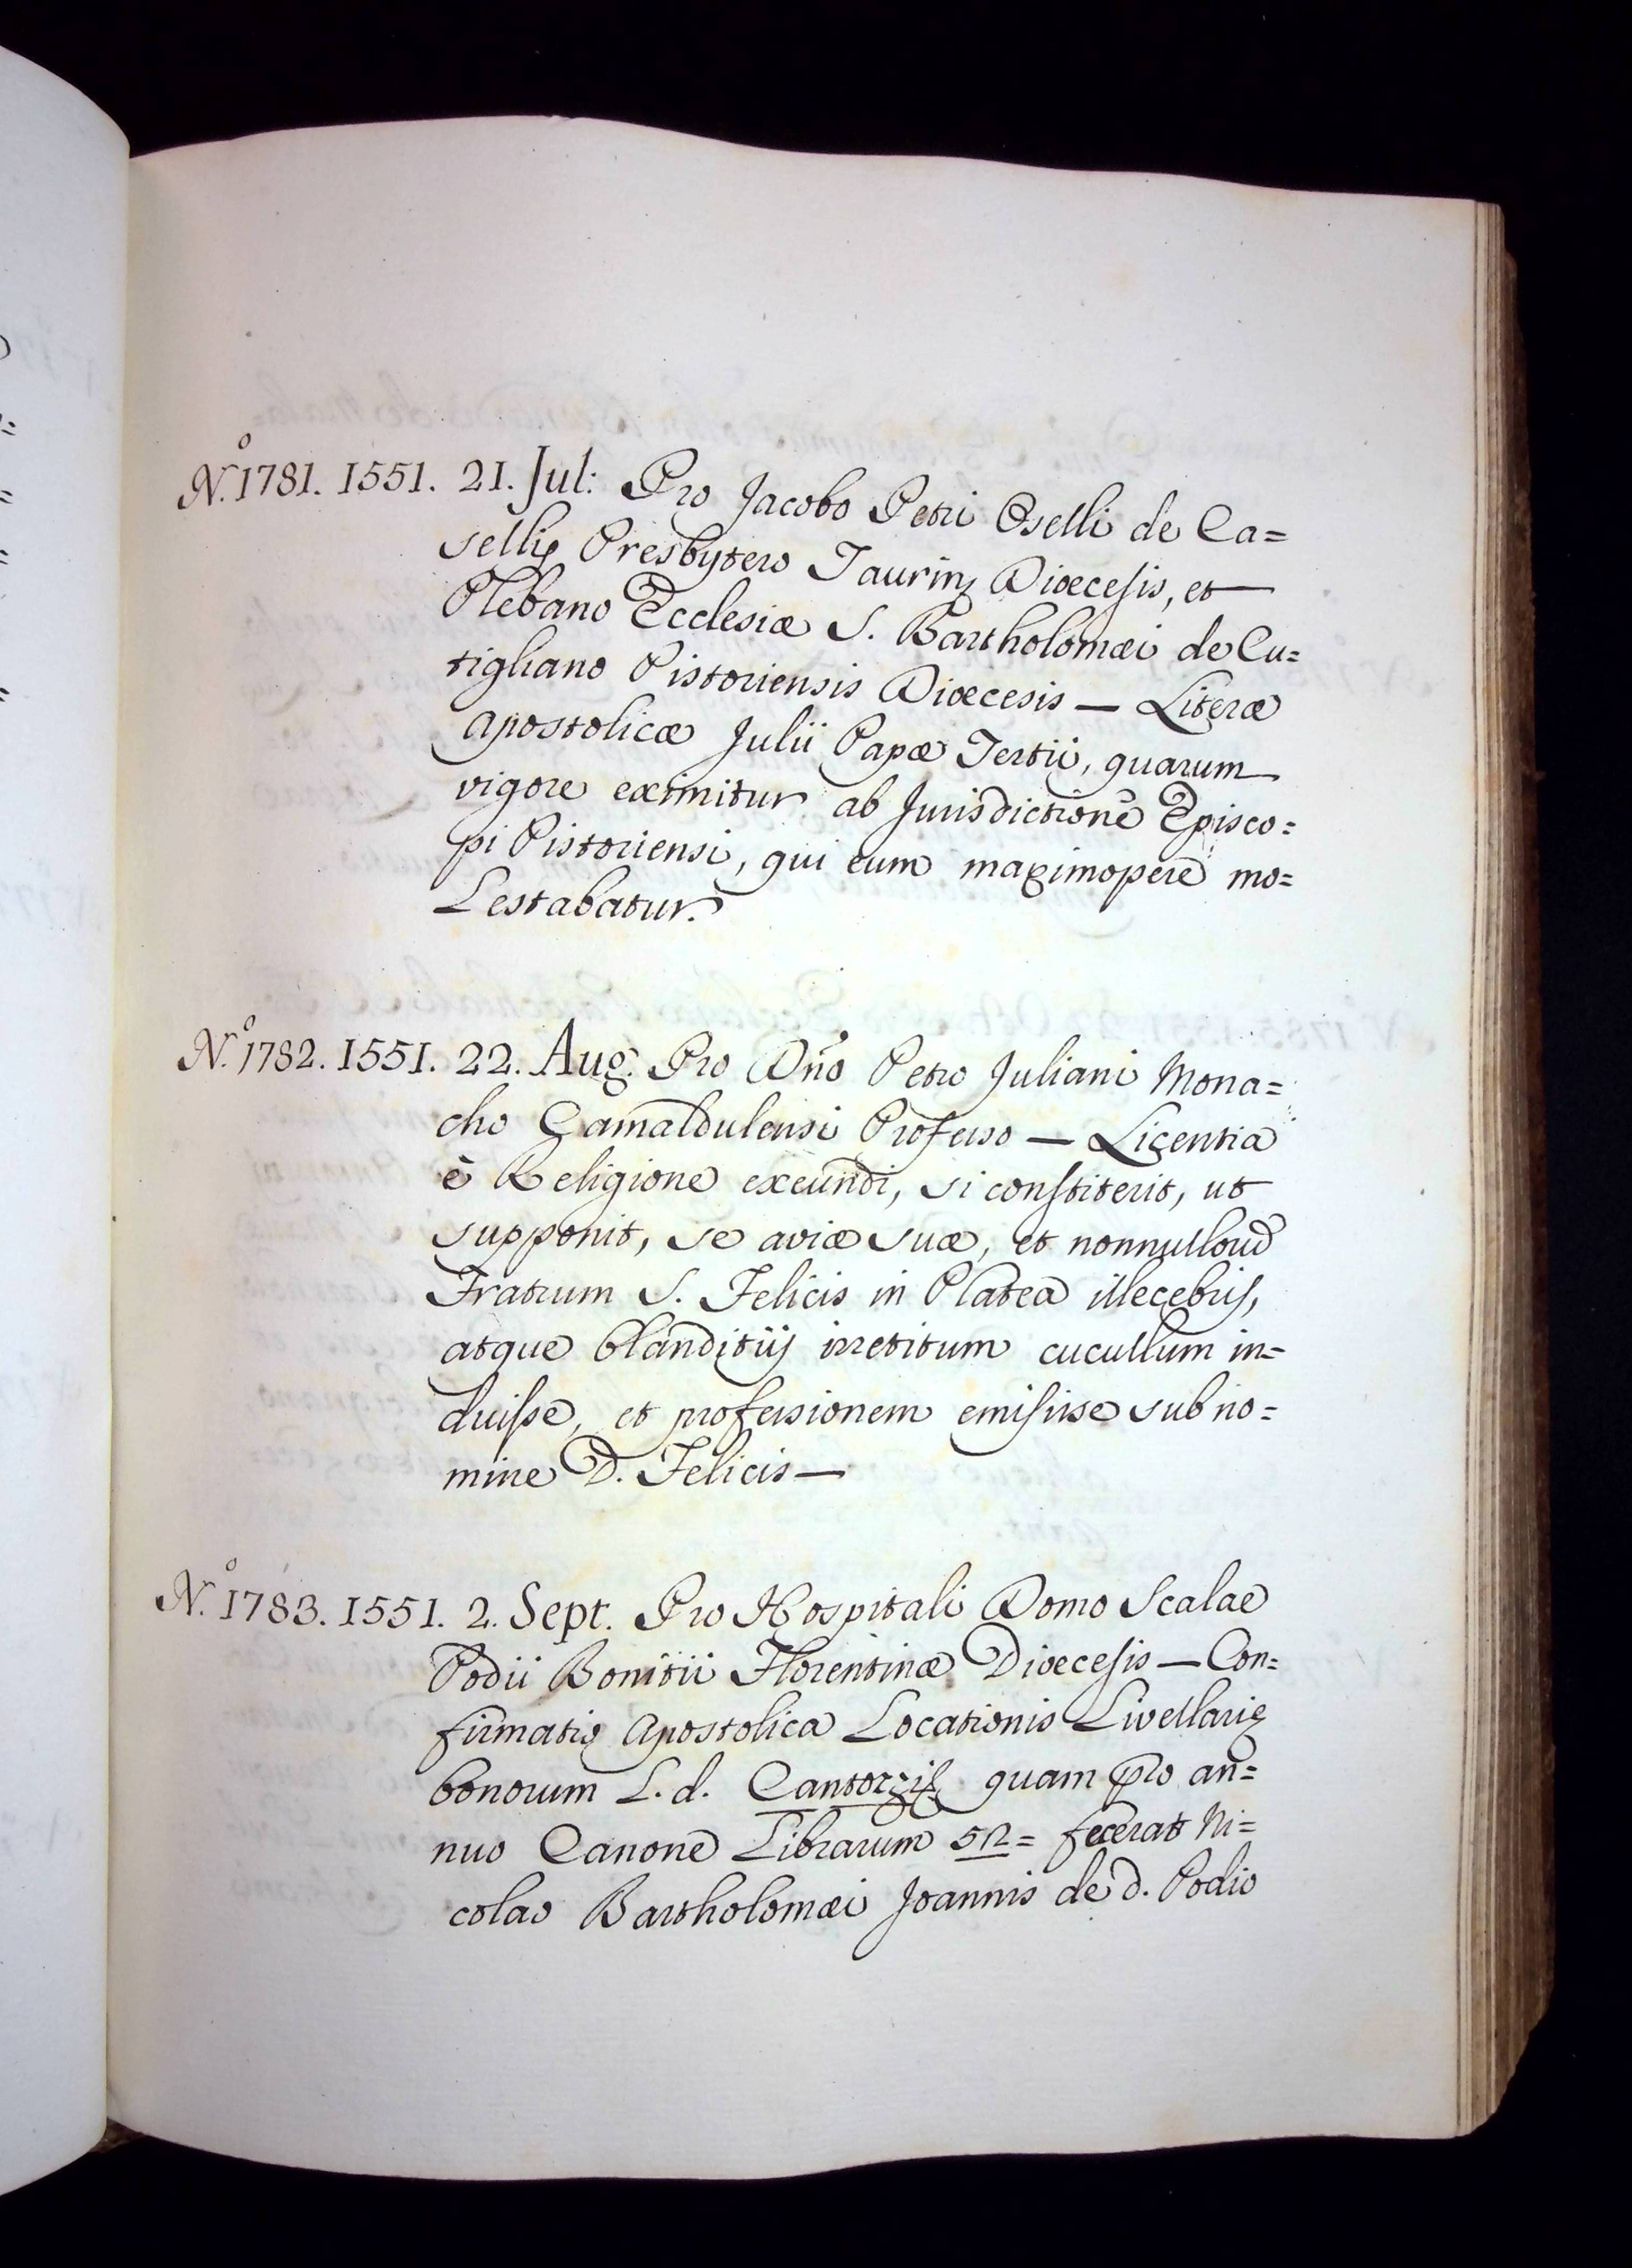 N.º 1781. 1551. 21. Jul: Pro Jacobo Petri Oselli de Ca=
sellis Presbytero Taurinę Diœcesis, et
Plebano Ecclesiæ S. Bartholomæi de Cu=
tigliano Pistoriensis Diœcesis — Literæ
Apostolicæ Julii Papæ Tertii, quarum
vigore eximitur ab Jurisdictione Episco=
pi Pistoriensi, qui eum maximopere mo=
lestabatur.
N.º 1782. 1551. 22. Aug. Pro Dño Petro Juliani Mona=
cho Camaldulensi Professo — Licentia
è Religione exeundi, si constiterit, ut
supponit, se aviæ suæ, et nonnulloruꝫ
Fratrum S. Felicis in Platea illecebris,
atque blanditijs irretitum cucullum in=
duisse, et professionem emisisse sub no=
mine D. Felicis —
N.º 1783. 1551. 2. Sept. Pro Hospitali Domo Scalae
Podii Bonitii Florentinæ Diœcesis — Con=
firmatio Apostolica Locationis Livellarię
bonorum L. d. quam pro an=
nuo Canone Librarum fecerat Ni=
colao Bartholomæi Joannis de d. Podio